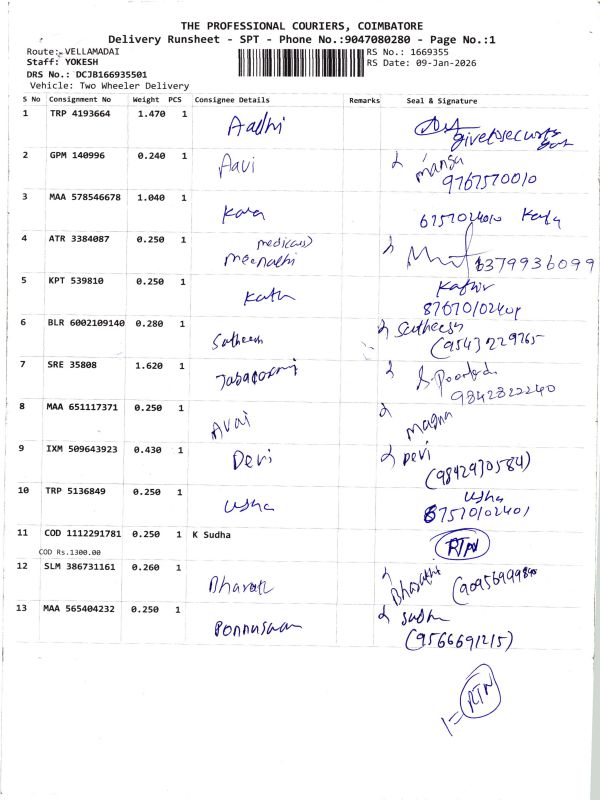 THE PROFESSIONAL COURIERS, COIMBATORE
Delivery Runsheet - SPT - Phone No.:9047080280 - Page No.:1
Route: VELLAMADAI
RS No.: 1669355
Staff: YOKESH
RS Date: 09-Jan-2026
DRS No.: DCJB166935501
Vehicle: Two Wheeler Delivery
S No Consignment No Weight PCS Consignee Details Remarks Seal & Signature
1 TRP 4193664 1.470 1 Aadhi
2 GPM 140996 0.240 1 Aavi mansa
9767570010
3 MAA 578546678 1.040 1 Kava
4 ATR 3384087 0.250 1 medicals)
meenathi 6379936099
5 KPT 539810 0.250 1
6 BLR 6002109140 0.280 1 Satheesh Satheesh
(9543229765
7 SRE 35808 1.620 1
9842822240
8 MAA 651117371 0.250 1 Avai magna
9 IXM 509643923 0.430 1 Devi Devi
(9842970584)
10 TRP 5136849 0.250 1 usha usha
11 COD 1112291781 0.250 1 K Sudha RTN
COD Rs.1300.00
12 SLM 386731161 0.260 1 Bharati Bharathi
13 MAA 565404232 0.250 1 Ponnusaam Sudha
(9566691215)
1= RTN